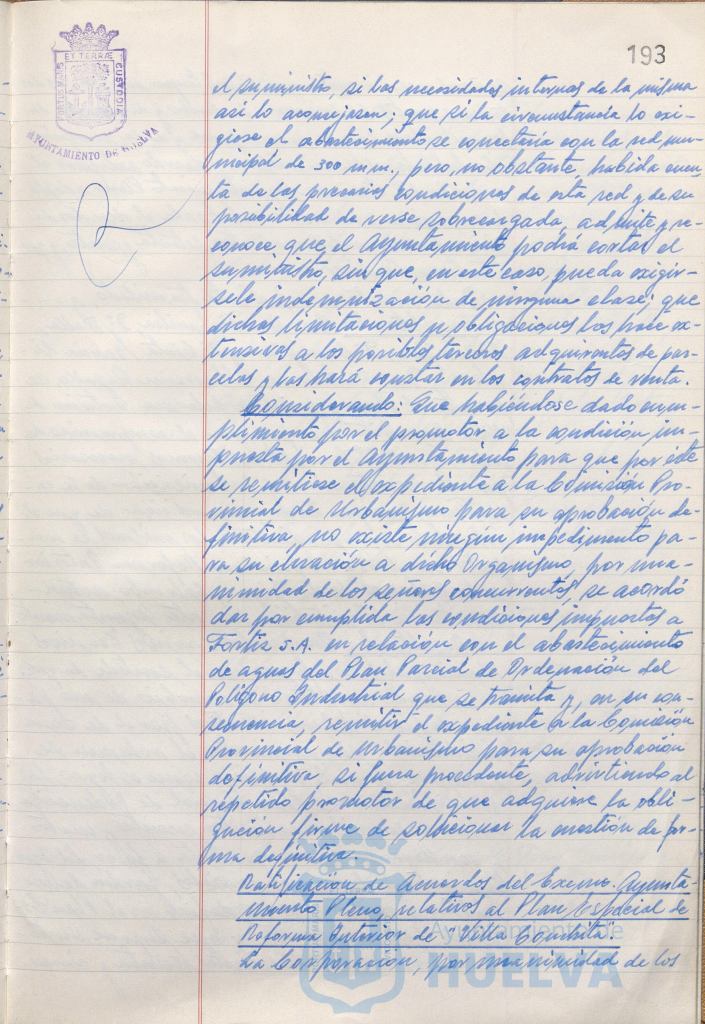 193
ET TERRÆ
PORTUS MARIS
CUSTODIA
AYUNTAMIENTO DE HUELVA
el suministro, si las necesidades internas de la misma
así lo aconsejasen; que si la circunstancia lo exi-
giese el abastecimiento se conectaría con la red mu-
nicipal de 300 m.m., pero, no obstante, habida cuen-
ta de las precarias condiciones de esta red y de su
posibilidad de verse sobrecargada, admite y re-
conoce que el Ayuntamiento podrá cortar el
suministro, sin que, en este caso, pueda exigir-
sele indemnización de ninguna clase; que
dichas limitaciones y obligaciones las hace ex-
tensivas a los posibles terceros adquirentes de par-
celas y las hará constar en los contratos de venta.
Considerando: Que habiéndose dado cum-
plimiento por el promotor a la condición im-
puesta por el Ayuntamiento para que por éste
se remitiese el expediente a la Comisión Pro-
vincial de Urbanismo para su aprobación de-
finitiva, no existe ningún impedimento pa-
ra su elevación a dicho Organismo, por una-
nimidad de los señores concurrentes, se acordó
dar por cumplida las condiciones impuestas a
Fortiz S.A. en relación con el abastecimiento
de aguas del Plan Parcial de Ordenación del
Polígono Industrial que se tramita y, en su con-
secuencia, remitir el expediente a la Comisión
Provincial de Urbanismo para su aprobación
definitiva, si fuera procedente, advirtiendo al
repetido promotor de que adquiere la obli-
gación firme de solucionar la cuestión de for-
ma definitiva.
Ratificación de Acuerdos del Excmo. Ayunta-
miento Pleno, relativos al Plan Especial de
Reforma Interior de "Villa Conchita".
La Corporación, por unanimidad de los
Ayuntamiento de
HUELVA